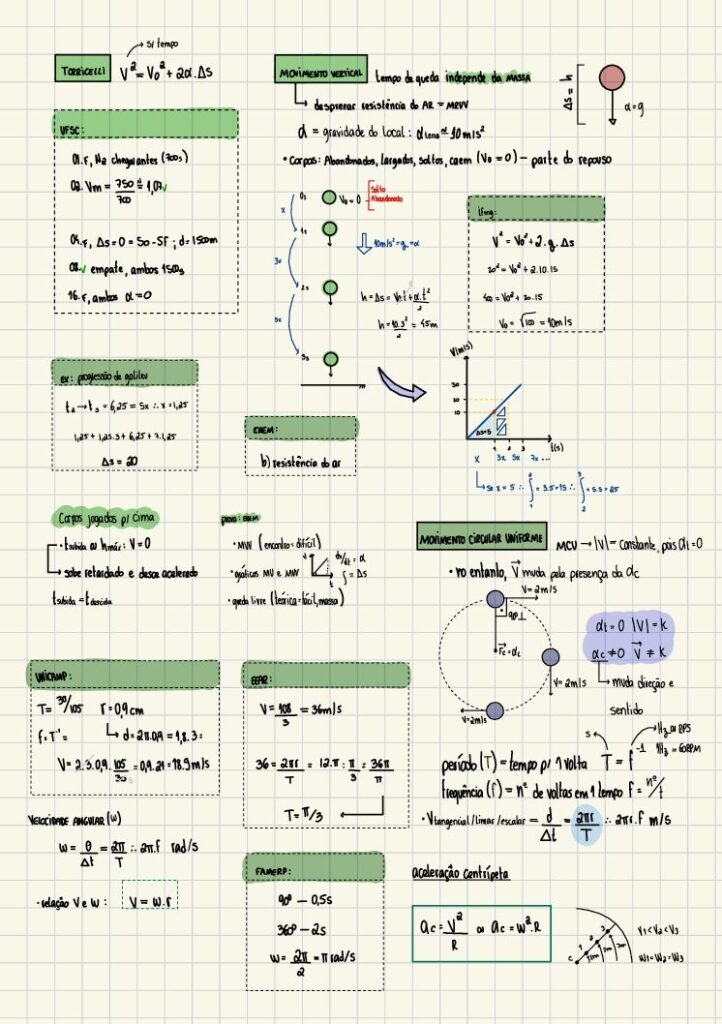 s/ tempo
TORRICELLI
V² = V₀² + 2α.Δs
UFSC:
01. F, N₂ chegou antes (700s)
02. Vm = 750/700 ≅ 1,07 ✓
04. F, Δs = 0 = S0 - SF ; d = 1500m
08. ✓ empate, ambos 1500s
16. F, ambos α = 0
MOVIMENTO VERTICAL
tempo de queda independe da MASSA
desprezar resistência do AR = MRUV
α = gravidade do local: α terra = 10m/s²
• Corpos: Abandonados, largados, soltos, caem (V₀ = 0) - parte do repouso
Δs = h
α = g
0s
V₀ = 0
Solto
Abandonado
x
1s
10m/s² = g = α
3x
2s
h = Δs = V₀.t + α.t²/2
h = 10.3²/2 = 45m
5x
3s
ifmg:
V² = V₀² + 2.g.Δs
20² = V₀² + 2.10.15
400 = V₀² + 20.15
V₀ = √100 = 10m/s
V(m/s)
30
20
10
Δs=5
1 2 3
t(s)
x 3x 5x 7x ...
se x = 5 ∴ ∫ = 3.5 = 15 ∴ ∫ = 5.5 = 25
1 2
2 3
ex: progressão de galileu
t₂ → t₃ = 6,25 = 5x ∴ x = 1,25
1,25 + 1,25.3 + 6,25 + 7.1,25
Δs = 20
ENEM:
b) resistência do ar
Corpos jogados p/ cima
• t subida ou hmáx: V = 0
sobe retardado e desce acelerado
t subida = t descida
prova: ENEM
• MUV (encontro = difícil)
• gráficos MU e MUV
dv/dt = α
∫ = Δs
• queda livre (teórica = fácil, massa)
MOVIMENTO CIRCULAR UNIFORME
MCU → |V| = constante, pois αt = 0
• no entanto, V muda pela presença da αc
V = 2m/s
90º ⊥
Fc = αc
V = 2m/s
V = 2m/s
αt = 0 |V| = k
αc ≠ 0 V ≠ k
muda direção e
sentido
UNICAMP:
T = 30/105 r = 0,9cm
f = T⁻¹ = d = 2π.0,9 = 1,8.3 =
V = 2.3.0,9.105/30 = 0,9.21 = 18,9m/s
EEAR:
V = 108/3 = 36m/s
36 = 2πr/T = 12.π : π/3 = 36π/π
T = π/3
s
Hz ou RPS
1Hz = 60RPM
período (T) = tempo p/ 1 volta T = f⁻¹
frequência (f) = nº de voltas em 1 tempo f = nº/t
• V tangencial/linear/escalar = d/Δt = 2πr/T ∴ 2πr.f m/s
VELOCIDADE ANGULAR (w)
w = θ/Δt = 2π/T ∴ 2π.f rad/s
• relação V e w: V = w.r
FAMERP:
90º - 0,5s
360º - 2s
w = 2π/2 = π rad/s
aceleração centrípeta
αc = V²/R ou αc = w².R
C 1 2 3
V₁ < V₂ < V₃
w₁ = w₂ = w₃